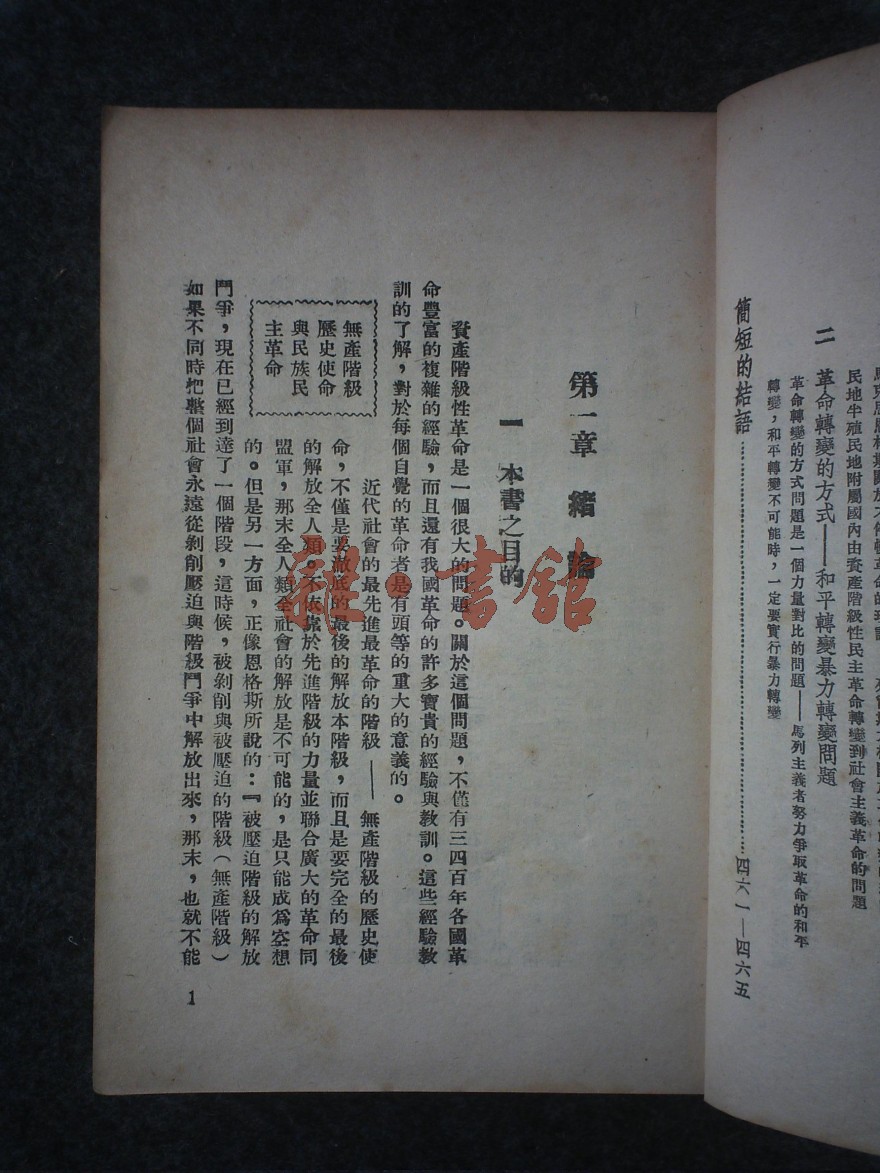 民地半殖民地附屬國內由資產階級性民主革命轉變到社會主義革命的問題
二 革命轉變的方式——和平轉變暴力轉變問題
革命轉變的方式問題是一個力量對比的問題——馬列主義者努力爭取革命的和平
轉變,和平轉變不可能時,一定要實行暴力轉變
簡短的結語……四六一—四六五
第一章 緒論
一 本書之目的
資產階級性革命是一個很大的問題。關於這個問題,不僅有三四百年各國革
命豐富的複雜的經驗,而且還有我國革命的許多寶貴的經驗與教訓。這些經驗教
訓的了解,對於每個自覺的革命者是有頭等的重大的意義的。
無產階級
歷史使命
與民族民
主革命
近代社會的最先進最革命的階級——無產階級的歷史使
命,不僅是要澈底的最後的解放本階級,而且是要完全的最後
的解放全人類。不依靠於先進階級的力量並聯合廣大的革命同
盟軍,那末全人類全社會的解放是不可能的,是只能成爲空想
的。但是另一方面,正像恩格斯所說的:『被壓迫階級的解放
鬥爭,現在已經到達了一個階段,這時候,被剝削與被壓迫的階級(無產階級)
如果不同時把整個社會永遠從剝削壓迫與階級鬥爭中解放出來,那末,也就不能
1
雜·書館